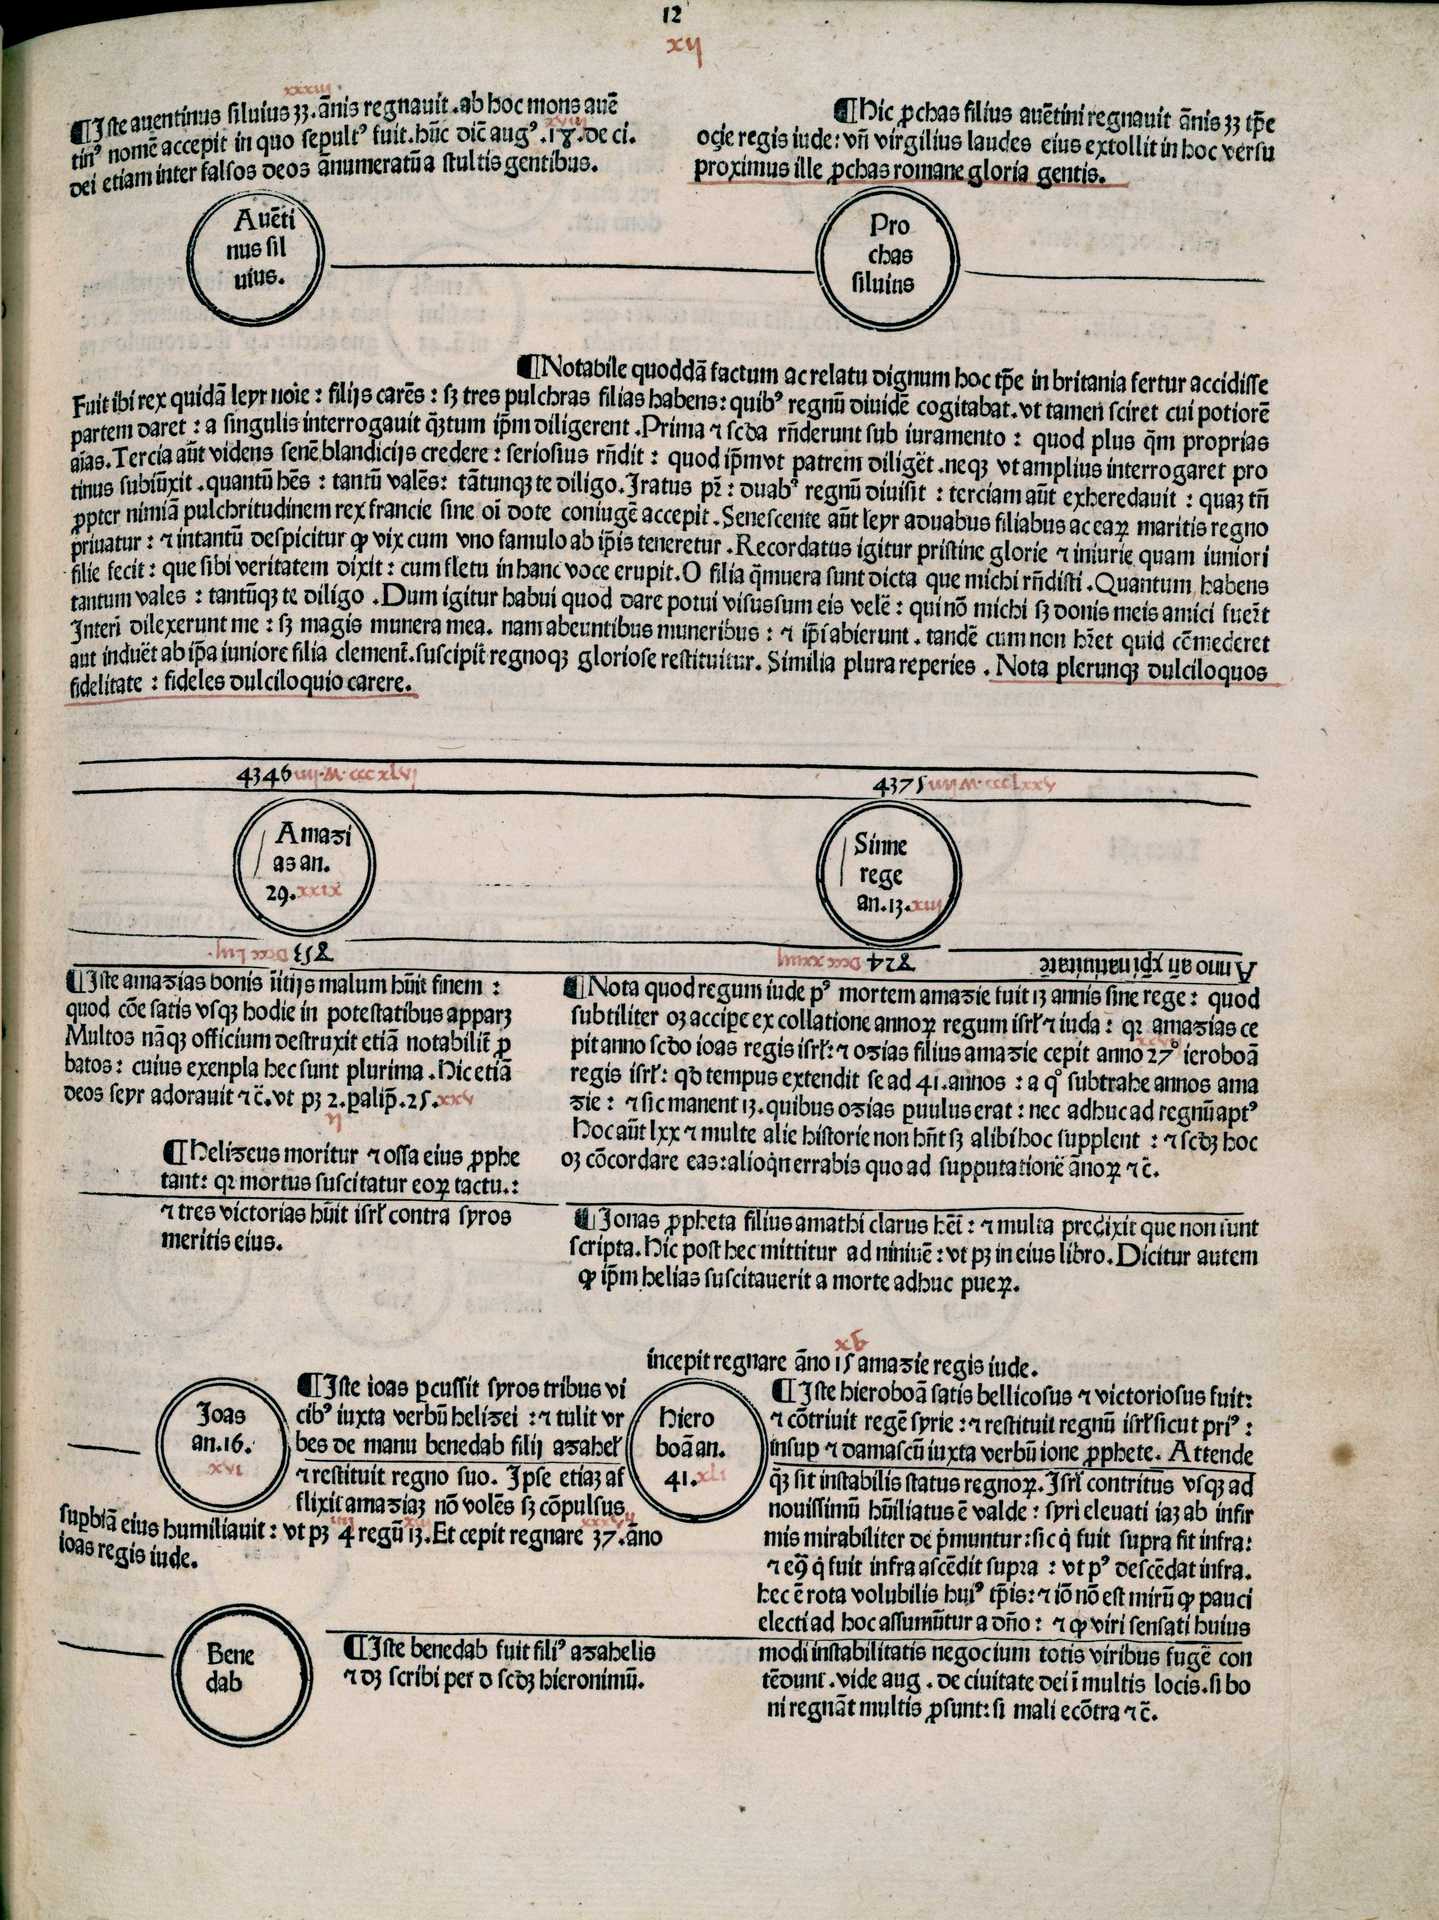 12
xij
xxxiii
¶Iste auentinus siluius 33. ānis regnauit .ab hoc mons auē
tinꝰ nomē accepit in quo sepultꝰ fuit. hūc dic̄ augꝰ .18. de ci.
xviii
dei etiam inter falsos deos ānumeratū a stultis gentibus.
¶Hic ꝓchas filius auētini regnauit ānis 33 tp̄e
oȥie regis iude: vn̄ virgilius laudes eius extollit in hoc versu
proximus ille ꝓchas romane gloria gentis.
Auēti
nus sil
uius.
Pro
chas
siluius
¶Notabile quoddā factum ac relatu dignum hoc tp̄e in britania fertur accidisse
Fuit ibi rex quidā leyr noīe : filijs carēs : sȝ tres pulchras filias habens: quibꝰ regnū diuidē cogitabat. vt tamen sciret cui potiorē
partem daret : a singulis interrogauit qȝtum ip̄m diligerent .Prima ⁊ scd̄a rn̄derunt sub iuramento : quod plus q̄m proprias
aīas. Tercia aūt videns senē blandicijs credere : seriosius rn̄dit : quod ip̄m vt patrem diligēt .neqȝ vt amplius interrogaret pro
tinus subiūxit .quantū hēs : tantū valēs: tātunqȝ te diligo. Iratus pr̄ : duabꝰ regnū diuisit : terciam aūt exheredauit : quaȝ tn̄
ꝓpter nimiā pulchritudinem rex francie sine oī dote coniugē accepit .Senescente aūt leyr a duabus filiabus ac eaꝝ maritis regno
priuatur : ⁊ intantū despicitur ꝙ vix cum vno famulo ab ip̄is teneretur .Recordatus igitur pristine glorie ⁊ iniurie quam iuniori
filie fecit : que sibi veritatem dixit : cum fletu in hanc voce erupit. O filia q̄m vera sunt dicta que michi rn̄disti .Quantum habens
tantum vales : tantūqȝ te diligo .Dum igitur habui quod dare potui visus sum eis velē : qui nō michi sȝ donis meis amici fuer̄t
Interī dilexerunt me : sȝ magis munera mea. nam abeuntibus muneribus : ⁊ ip̄i abierunt . tandē cum non hr̄et quid cōmederet
aut induēt ab ip̄a iuniore filia clemēt. suscipit̄ regnoqȝ gloriose restituitur. Similia plura reperies . Nota plerunqȝ dulciloquos
fidelitate : fideles dulciloquio carere.
4346 iiij·M·cccxlvj
4375 iiijM·ccclxxv
Amaȝi
as an.
29. xxix
Sinne
rege
an.13. xiij
853 Dccc liij.
824 Dccc xxiiij
Anno an̄ xp̄i natiuitatē
¶Iste amaȝias bonis īitijs malum hūit finem :
quod cōe satis vsqȝ hodie in potestatibus apparȝ
Multos nāqȝ officium destruxit etiā notabilit̄ ꝓ
batos: cuius exenpla hec sunt plurima .Hic etiā
deos seyr adorauit ⁊ c̄. vt pȝ 2. palip̄. 25. xxv
ij
¶Nota quod regum iude pꝰ mortem amaȝie fuit 13 annis sine rege: quod
subtiliter oȝ accipe ex collatione annoꝝ regum isrl̄ ⁊ iuda : qꝛ amaȝias ce
pit anno scd̄o ioas regis isrl̄: ⁊ oȝias filius amaȝie cepit anno 27° ieroboā
xxvij
regis isrl̄: qd̄ tempus extendit se ad 41. annos : a qͦ subtrahe annos ama
ȝie : ⁊ sic manent 13. quibus oȝias puulus erat : nec adhuc ad regnū aptꝰ
Hoc aūt lxx ⁊ multe alie historie non hn̄t sȝ alibi hoc supplent : ⁊ scd̄ȝ hoc
oȝ cōcordare eas: alioq̄n errabis quo ad supputationē ānoꝝ ⁊ c̄.
¶Heliȝeus moritur ⁊ ossa eius ꝓphe
tant: qꝛ mortus suscitatur eoꝝ tactu. :
⁊ tres victorias hūit isrl̄ contra syros
meritis eius.
¶Jonas ꝓpheta filius amathi clarus hēt̄ : ⁊ multa predixit que non sunt
scripta. Hic post hec mittitur ad niniuē : vt pȝ in eius libro. Dicitur autem
ꝙ ip̄m helias suscitauerit a morte adhuc pueꝝ.
xv
incepit regnare āno 15 amaȝie regis iude.
Joas
an.16.
xvi
¶Iste ioas ꝑcussit syros tribus vi
cibꝰ iuxta verbū heliȝei : ⁊ tulit vr
bes de manu benedab filij aȝahel
⁊ restituit regno suo. Ipse etiaȝ af
flixit amaȝiaȝ nō volēs sȝ cōpulsus
supbiā eius humiliauit : vt pȝ 4 regū 13. Et cepit regnare 37. āno
iiij xiij xxxvij
ioas regis iude.
Hiero
boā an.
41. xli
¶Iste hieroboā satis bellicosus ⁊ victoriosus fuit:
⁊ cōtriuit regē syrie : ⁊ restituit regnū isrl̄ sicut priꝰ :
insup ⁊ damascū iuxta verbū ione ꝓphete. Attende
qȝ sit instabilis status regnoꝝ. Isrl̄ contritus vsqȝ ad
nouissimū hūiliatus ē valde : syri eleuati iaȝ ab infir
mis mirabiliter de p̄muntur: sic q̇ fuit supra fit infra:
⁊ eꝯ q̇ fuit infra ascēdit supra : vt pꝰ descēdat infra.
hec ē rota volubilis huiꝰ tp̄is: ⁊ iō nō est mirū ꝙ pauci
electi ad hoc assumūtur a dn̄o : ⁊ ꝙ viri sensati huius
modi instabilitatis negocium totis viribus fugē con
tēdunt . vide aug . de ciuitate dei ī multis locis. si bo
ni regnāt multis ꝓsunt: si mali ecōtra ⁊ c̄.
Bene
dab
¶Iste benedab fuit filiꝰ aȝahelis
⁊ dȝ scribi per d scd̄ȝ hieronimū.